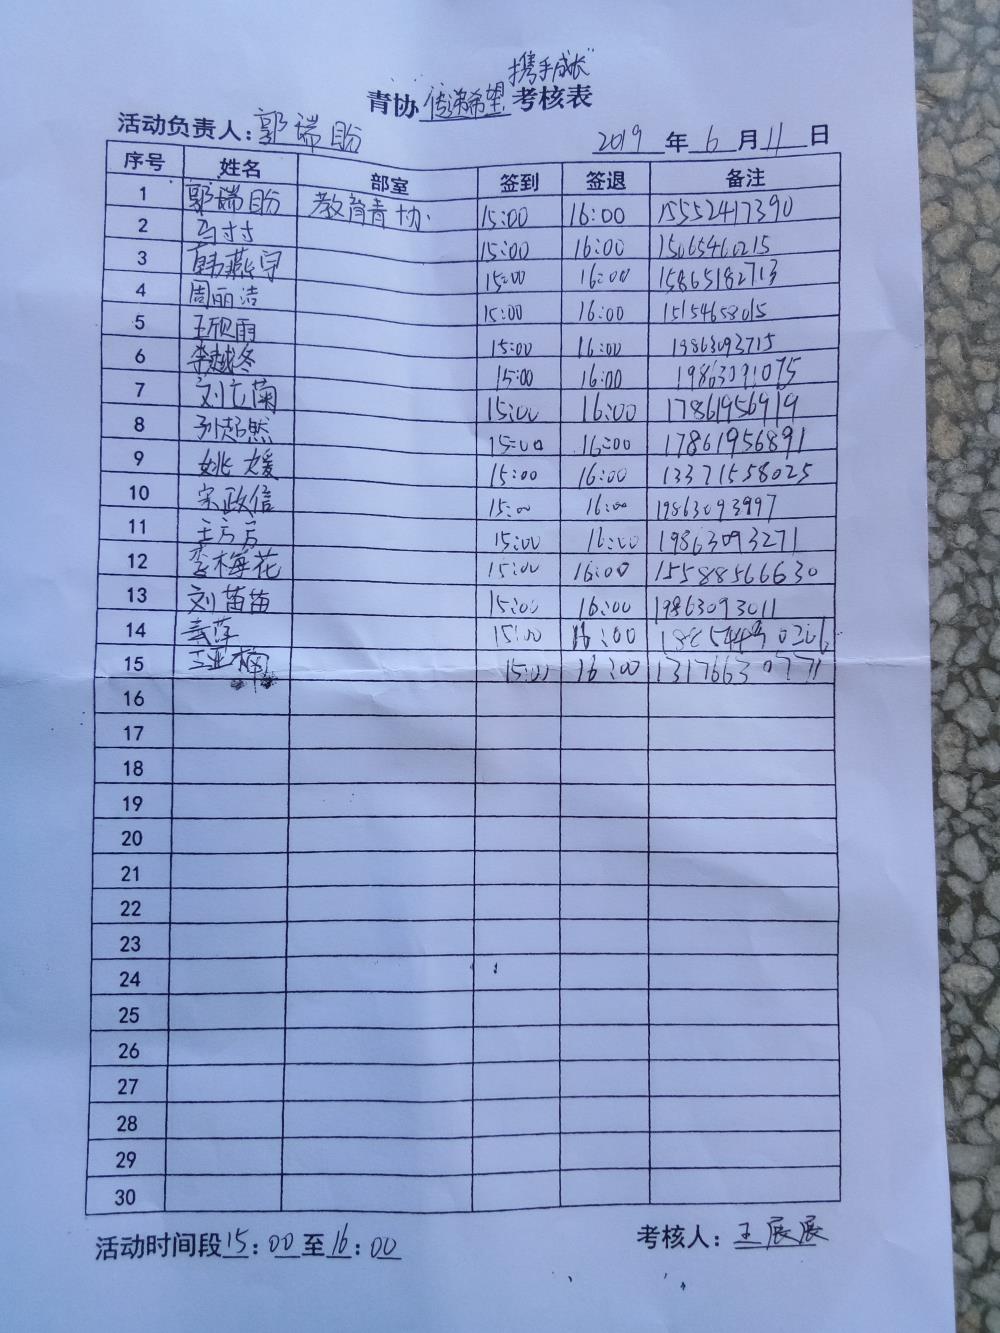 携手成长
青协 传递希望 考核表
活动负责人：郭瑞盼 2019 年 6 月 11 日
序号 姓名 部室 签到 签退 备注
1 郭瑞盼 教育青协 15:00 16:00 15552417390
2 15:00 16:00 15065460215
3 韩燕宇 15:00 16:00 15865182713
4 周丽洁 15:00 16:00 15154658015
5 王欣雨 15:00 16:00 19863093715
6 李越冬 15:00 16:00 19863091075
7 刘立菊 15:00 16:00 17861956919
8 孙超然 15:00 16:00 17861956891
9 姚媛 15:00 16:00 13371558025
10 宋政信 15:00 16:00 19863093997
11 王方方 15:00 16:00 19863093271
12 李梅花 15:00 16:00 15588566630
13 刘苗苗 15:00 16:00 19863093011
14 15:00 16:00
15 王亚楠 15:00 16:00 13176630771
16
17
18
19
20
21
22
23
24
25
26
27
28
29
30
活动时间段 15:00 至 16:00 考核人：王展展